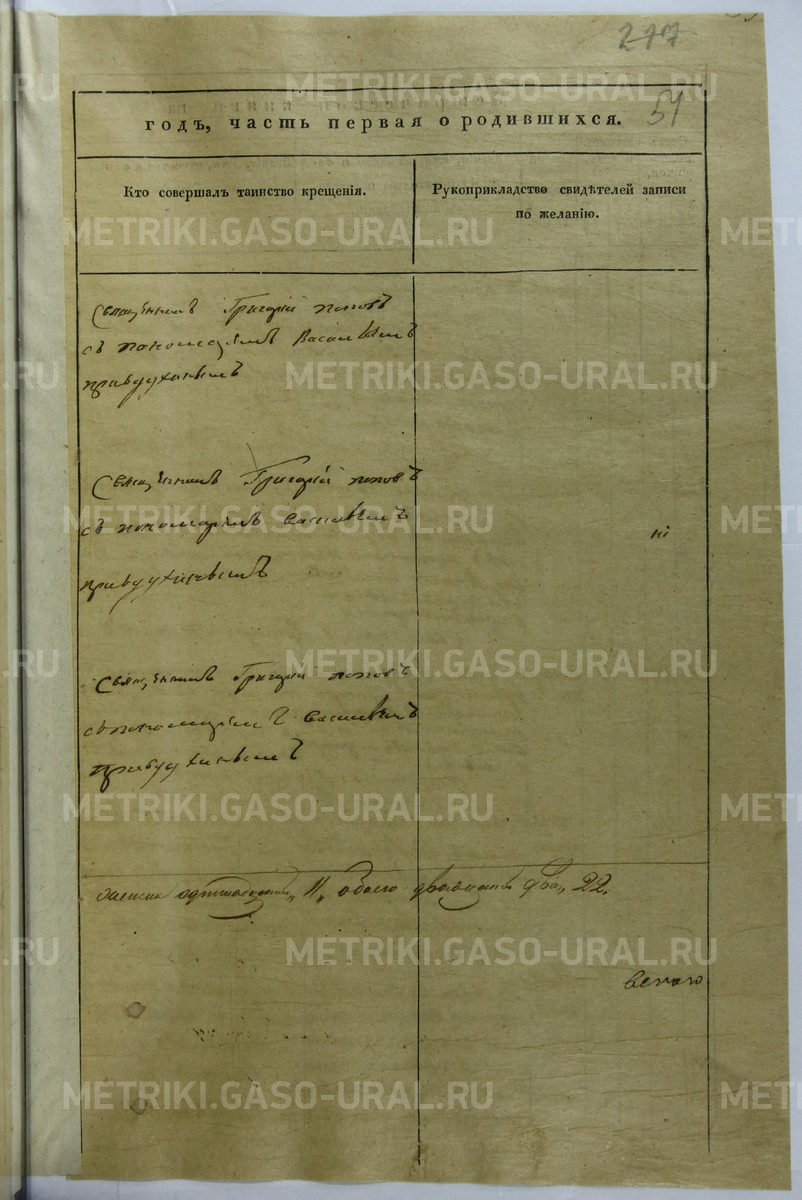 277
54
годъ, часть первая о родившихся.
Кто совершалъ таинство крещенія.
Рукоприкладство свидѣтелей записи
по желанію.
Священникъ Григорій Поповъ
съ пономаремъ Васильемъ
Священникъ Григорій Поповъ
съ пономаремъ Васильемъ
Священникъ Григорій Поповъ
съ пономаремъ Васильемъ
женска одинадцать „11„ обоего двадцать два„ 22.
METRIKI.GASO-URAL.RU